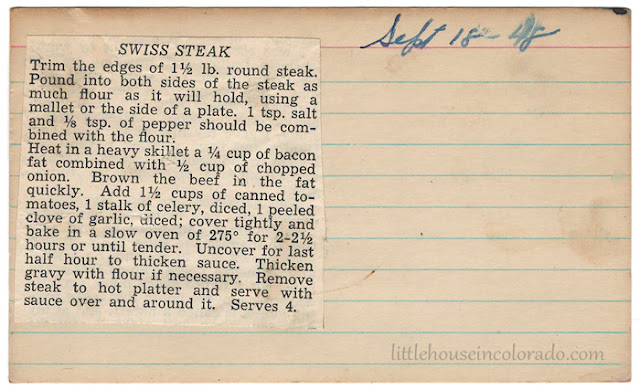 Sept 18 - 48
SWISS STEAK
Trim the edges of 1½ lb. round steak.
Pound into both sides of the steak as
much flour as it will hold, using a
mallet or the side of a plate. 1 tsp. salt
and ⅛ tsp. of pepper should be com-
bined with the flour.
Heat in a heavy skillet a ¼ cup of bacon
fat combined with ½ cup of chopped
onion. Brown the beef in the fat
quickly. Add 1½ cups of canned to-
matoes, 1 stalk of celery, diced, 1 peeled
clove of garlic, diced; cover tightly and
bake in a slow oven of 275° for 2-2½
hours or until tender. Uncover for last
half hour to thicken sauce. Thicken
gravy with flour if necessary. Remove
steak to hot platter and serve with
sauce over and around it. Serves 4.
littlehouseincolorado.com